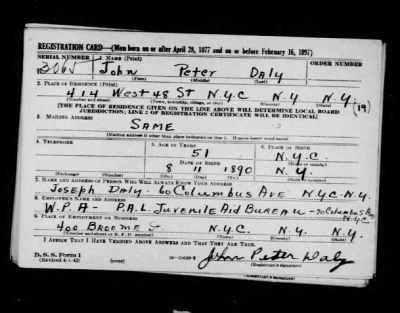 REGISTRATION CARD—(Men born on or after April 28, 1877 and on or before February 16, 1897)
SERIAL NUMBER 1. NAME (Print) ORDER NUMBER
John Peter Daly
(First) (Middle) (Last)
2. PLACE OF RESIDENCE (Print)
414 West 48 St N.Y.C N.Y N.Y. (19)
(Number and street) (Town, township, village, or city) (County) (State)
[THE PLACE OF RESIDENCE GIVEN ON THE LINE ABOVE WILL DETERMINE LOCAL BOARD
JURISDICTION; LINE 2 OF REGISTRATION CERTIFICATE WILL BE IDENTICAL]
3. MAILING ADDRESS
SAME
[Mailing address if other than place indicated on line 2. If same insert word same]
4. TELEPHONE 5. AGE IN YEARS 6. PLACE OF BIRTH
51 N.Y.C.
DATE OF BIRTH (Town or county)
8 11 1890 N.Y.
(Exchange) (Number) (Mo.) (Day) (Yr.) (State or country)
7. NAME AND ADDRESS OF PERSON WHO WILL ALWAYS KNOW YOUR ADDRESS
Joseph Daly - 60 Columbus Ave N.Y.C-N.Y.
8. EMPLOYER'S NAME AND ADDRESS
W.P.A- P.A.L. Juvenile Aid Bureau - Columbus Ave
N.Y.C
9. PLACE OF EMPLOYMENT OR BUSINESS
400 Broome St N.Y.C. N.Y. N.Y.
(Number and street or R. F. D. number) (Town) (County) (State)
I AFFIRM THAT I HAVE VERIFIED ABOVE ANSWERS AND THAT THEY ARE TRUE.
D. S. S. Form 1
(Revised 4-1-42) (over) John Peter Daly
(Registrant's signature)